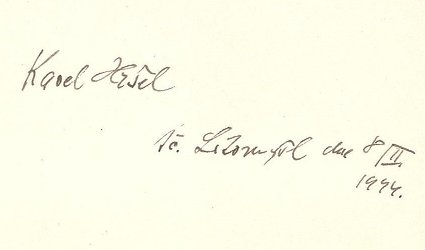 Karel Hršel
tč. Litomyšl dne 8/II.
1944.